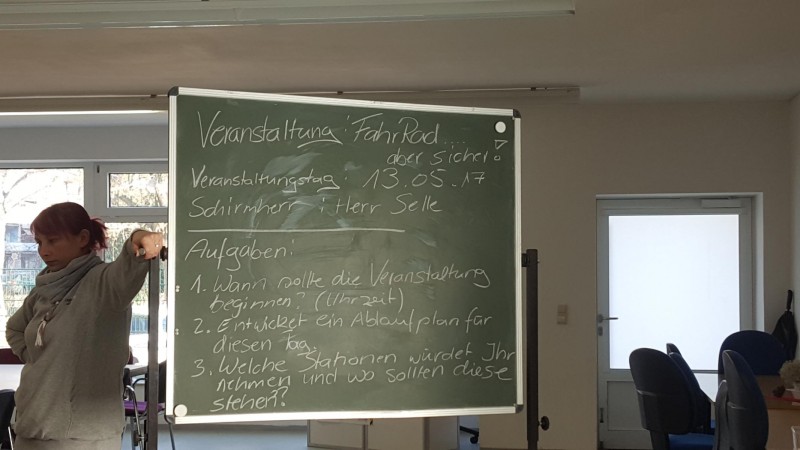 Veranstaltung: FahrRad....
aber sicher!
Veranstaltungstag: 13.05.17
Schirmherr: Herr Selle
Aufgaben:
1. Wann sollte die Veranstaltung
beginnen? (Uhrzeit)
2. Entwickelt ein Ablaufplan für
diesen Tag.
3. Welche Stationen würdet Ihr
nehmen und wo sollten diese
stehen?